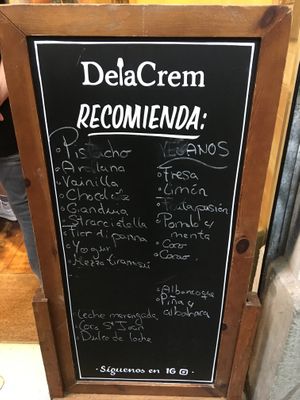 DelaCrem
RECOMIENDA:
Pistacho
Avellana
Vainilla
Chocolate
Gianduia
Stracciatella
Fior di panna
Yogur
Mezzo tiramisú
Leche merengada
Coca St Joan
Dulce de leche
VEGANOS
Fresa
Limón
Fruta pasión
Pomelo y
menta
Coco
Cacao
Albaricoque
Piña y
albahaca
· Síguenos en IG ·